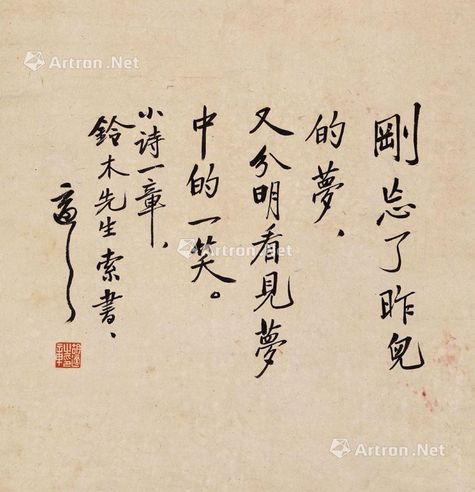 剛忘了昨兒
的夢、
又分明看見夢
中的一笑。
小詩一章、
鈴木先生索書、
適之
胡適之印章
Artron.Net
Artron.Net
Artron.Net
Artron.Net